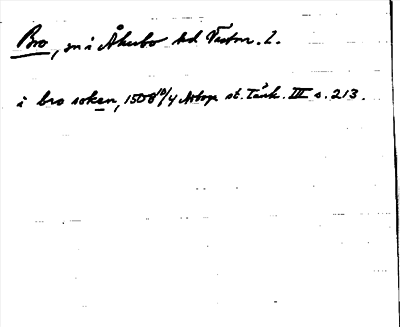 Bro, sn i Åkerbo hd. Västm. l.
i bro soken, 1508 10/4 Arboga st. Tänk. III s. 213.